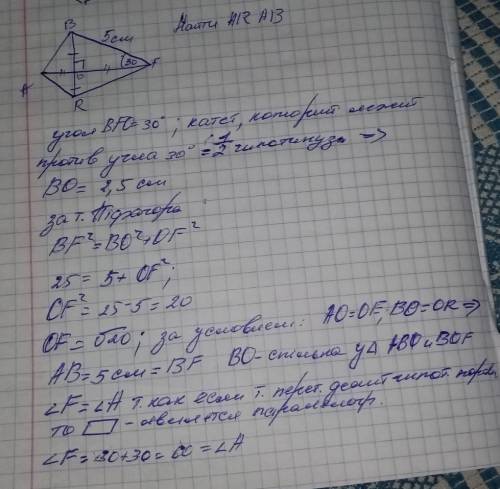 Найти AR AB
B
5 см
30
F
A
O
R
угол BFO = 30°; катет, который лежит
против угла 30° = 1/2 гипотинузы =>
BO = 2,5 см
за т. Піфагора
BF² = BO² + OF²
25 = 5 + OF²;
OF² = 25 - 5 = 20
OF = √20; за условием: AO = OF; BO = OR =>
AB = 5 см = BF BO - спільна у Δ ABO и BOF
∠F = ∠A т. как если т. перет. делит попол.
то ▭ - является паралелогр.
∠F = 30 + 30 = 60 = ∠A